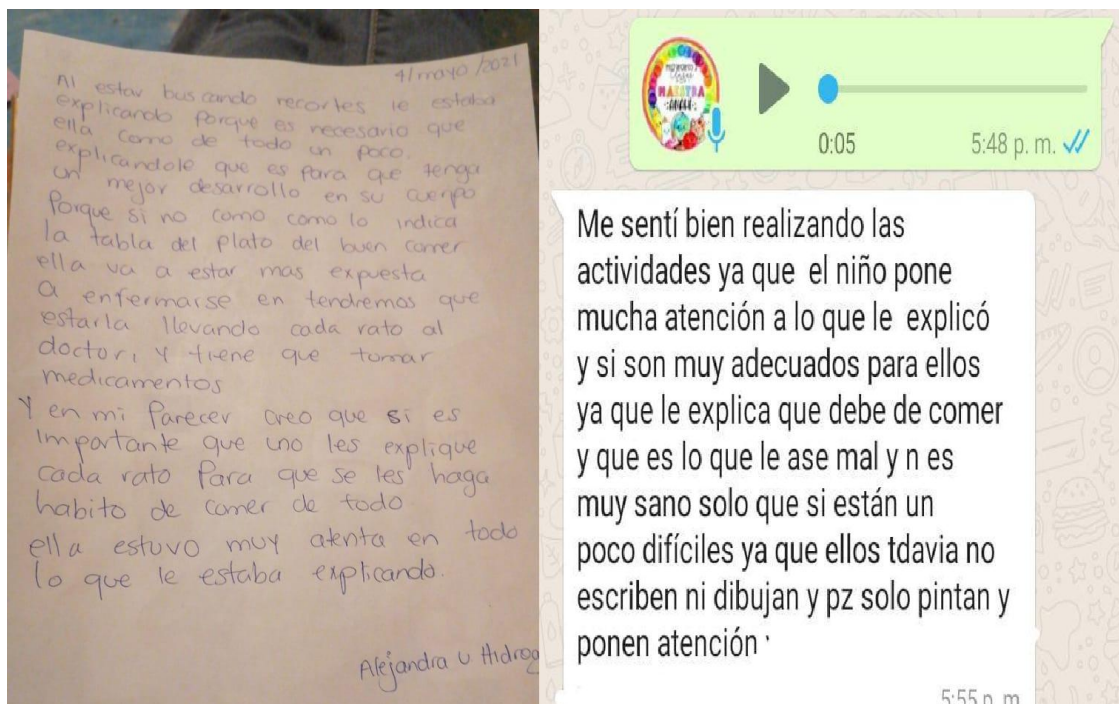 4/mayo/2021
Al estar buscando recortes le estaba
explicando porque es necesario que
ella coma de todo un poco.
explicandole que es para que tenga
un mejor desarrollo en su cuerpo
Porque si no come como lo indica
la tabla del plato del buen comer
ella va a estar mas expuesta
a enfermarse en tendremos que
estarla llevando cada rato al
doctor, y tiene que tomar
medicamentos
Y en mi Parecer creo que si es
importante que uno les explique
cada rato Para que se les haga
habito de comer de todo
ella estuvo muy atenta en todo
lo que le estaba explicando.
Alejandra U Hidrog
MAESTRA
0:05
5:48 p. m.
Me sentí bien realizando las
actividades ya que el niño pone
mucha atención a lo que le explicó
y si son muy adecuados para ellos
ya que le explica que debe de comer
y que es lo que le ase mal y n es
muy sano solo que si están un
poco difíciles ya que ellos tdavia no
escriben ni dibujan y pz solo pintan y
ponen atención
5:55 p. m.